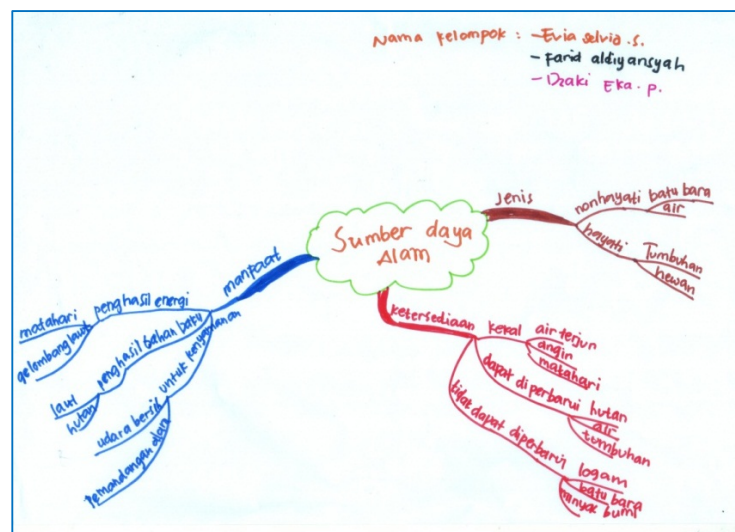 Nama kelompok : - Evia selvia .s.
- Farid aldiyansyah
- Dzaki Eka . p.
Sumber daya
Alam
jenis
nonhayati
batu bara
air
hayati
Tumbuhan
hewan
ketersediaan
kekal
air terjun
angin
matahari
dapat diperbarui
hutan
air
tumbuhan
tidak dapat diperbarui
logam
batu bara
minyak bumi
manfaat
penghasil energi
matahari
gelombang laut
penghasil bahan baku
laut
hutan
untuk kenyamanan
udara bersih
pemandangan alam